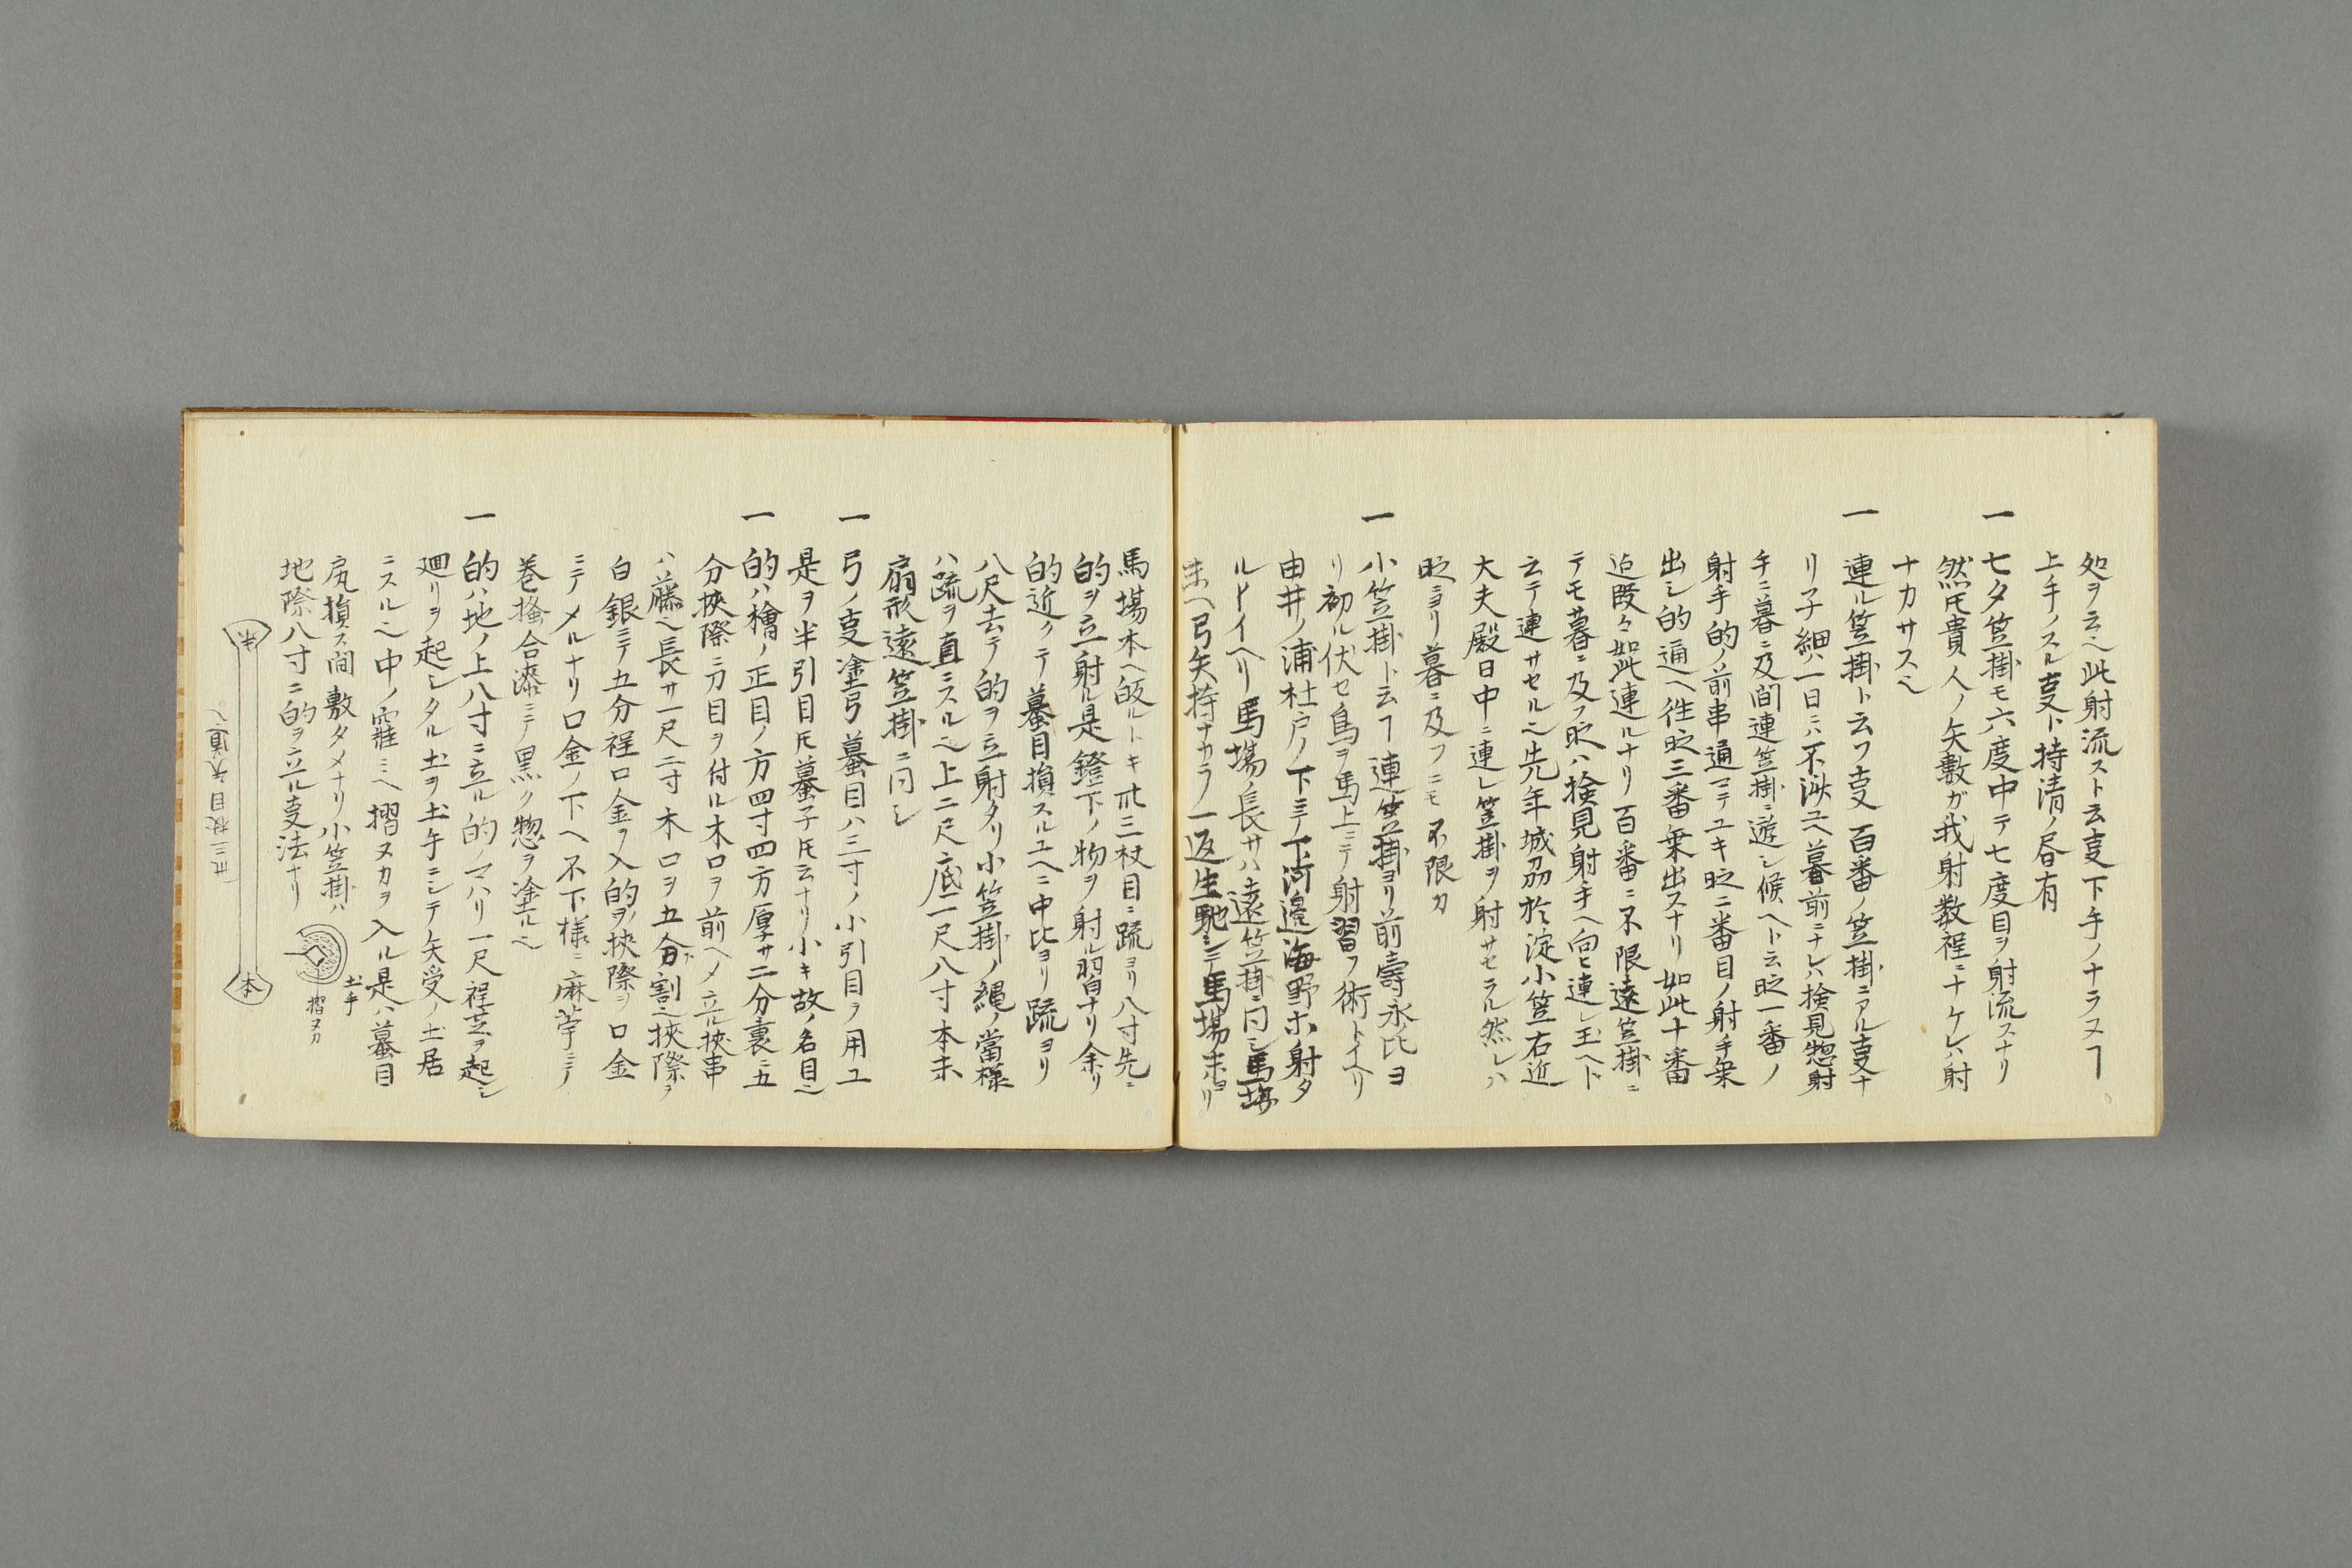 処ヲ云ヘ此射流スト云叓下手ノナラヌヿ
上手ノスル叓ト持清ノ昏有
一 七夕笠掛モ六度中テ七度目ヲ射流スナリ
然𪜈貴人ノ矢數ガ我射数程ニナケレハ射
ナカサスヘ
一 連ル笠掛ト云フ叓百番ノ笠掛ニアル叓ナ
リ子細ハ一日ニハ不渉ユヘ暮前ニナレハ検見惣射
手ニ暮ニ及間連笠掛ニ遊シ候ヘト云時一番ノ
射手的ノ前串通マテユキ時二番目ノ射手乗
出シ的通ヘ往時三番乗出スナリ如此十番
迠段々如此連ルナリ百番ニ不限遠笠掛ニ
テモ暮ニ及フ時ハ検見射手ヘ向ヒ連レ玉ヘト
云テ連サセルヘ先年城刕於淀小笠右近
大夫殿日中ニ連レ笠掛ヲ射サセラル然レハ
時ニヨリ暮ニ及フニモ不限カ
一 小笠掛ト云ヿ連笠掛ヨリ前壽永比ヨ
リ初ル伏セ鳥ヲ馬上ニテ射習フ術トイヘリ
由井ノ浦杜戸ノ下ミノ下河邉海野ホノ射タ
ルトイヘリ馬場ノ長サハ遠笠掛ニ同シ馬場
末ヘ弓矢持ナカラ一返生馳シテ馬場末ヨリ
馬場本ヘ皈ルトキ卅三杖目ニ疏ヨリ八寸先ニ
的ヲ立射ル是鐙下ノ物ヲ射ル習ナリ余リ
的近クテ蟇目損スルユヘニ中比ヨリ疏ヨリ
八尺去テ的ヲ立射タリ小笠掛ノ縄ノ當様
ハ疏ヲ直ニスルヘ上二尺底一尺八寸本末
扇形遠笠掛ニ同シ
一 弓ノ叓塗弓蟇目ハ三寸ノ小引目ヲ用ユ
是ヲ半引目𪜈蟇子𪜈云ナリ小キ故ノ名目ヘ
一 的ハ檜ノ正目ノ方四寸四方厚サ二分裏ニ五
分挾際ニ刀目ヲ付ル木口ヲ前ヘメ立ル挾串
ハ藤ヘ長サ一尺二寸木口ヲ五分割之挾際ヲ
白銀ニテ五分程口金ヲ入的ヲ挾際ヲ口金
ニテメルナリ口金ノ下ヘ不下様ニ麻苧ニテ
巻搔合漆ニテ黒ク惣ヲ塗ルヘ
一 的ハ地ノ上八寸ニ立ル的ノマハリ一尺程芝ヲ起シ
廻リヲ起シタル土ヲ土手ニシテ矢受ノ土居
ニスルヘ中ノ窪ミヘ摺ヌカヲ入ル是ハ蟇目
尻損ス間敷タメナリ小笠掛ハ
地際八寸ニ的ヲ立ル叓法ナリ
土手
摺ヌカ
末
本
卅三杖目矢道ヘ